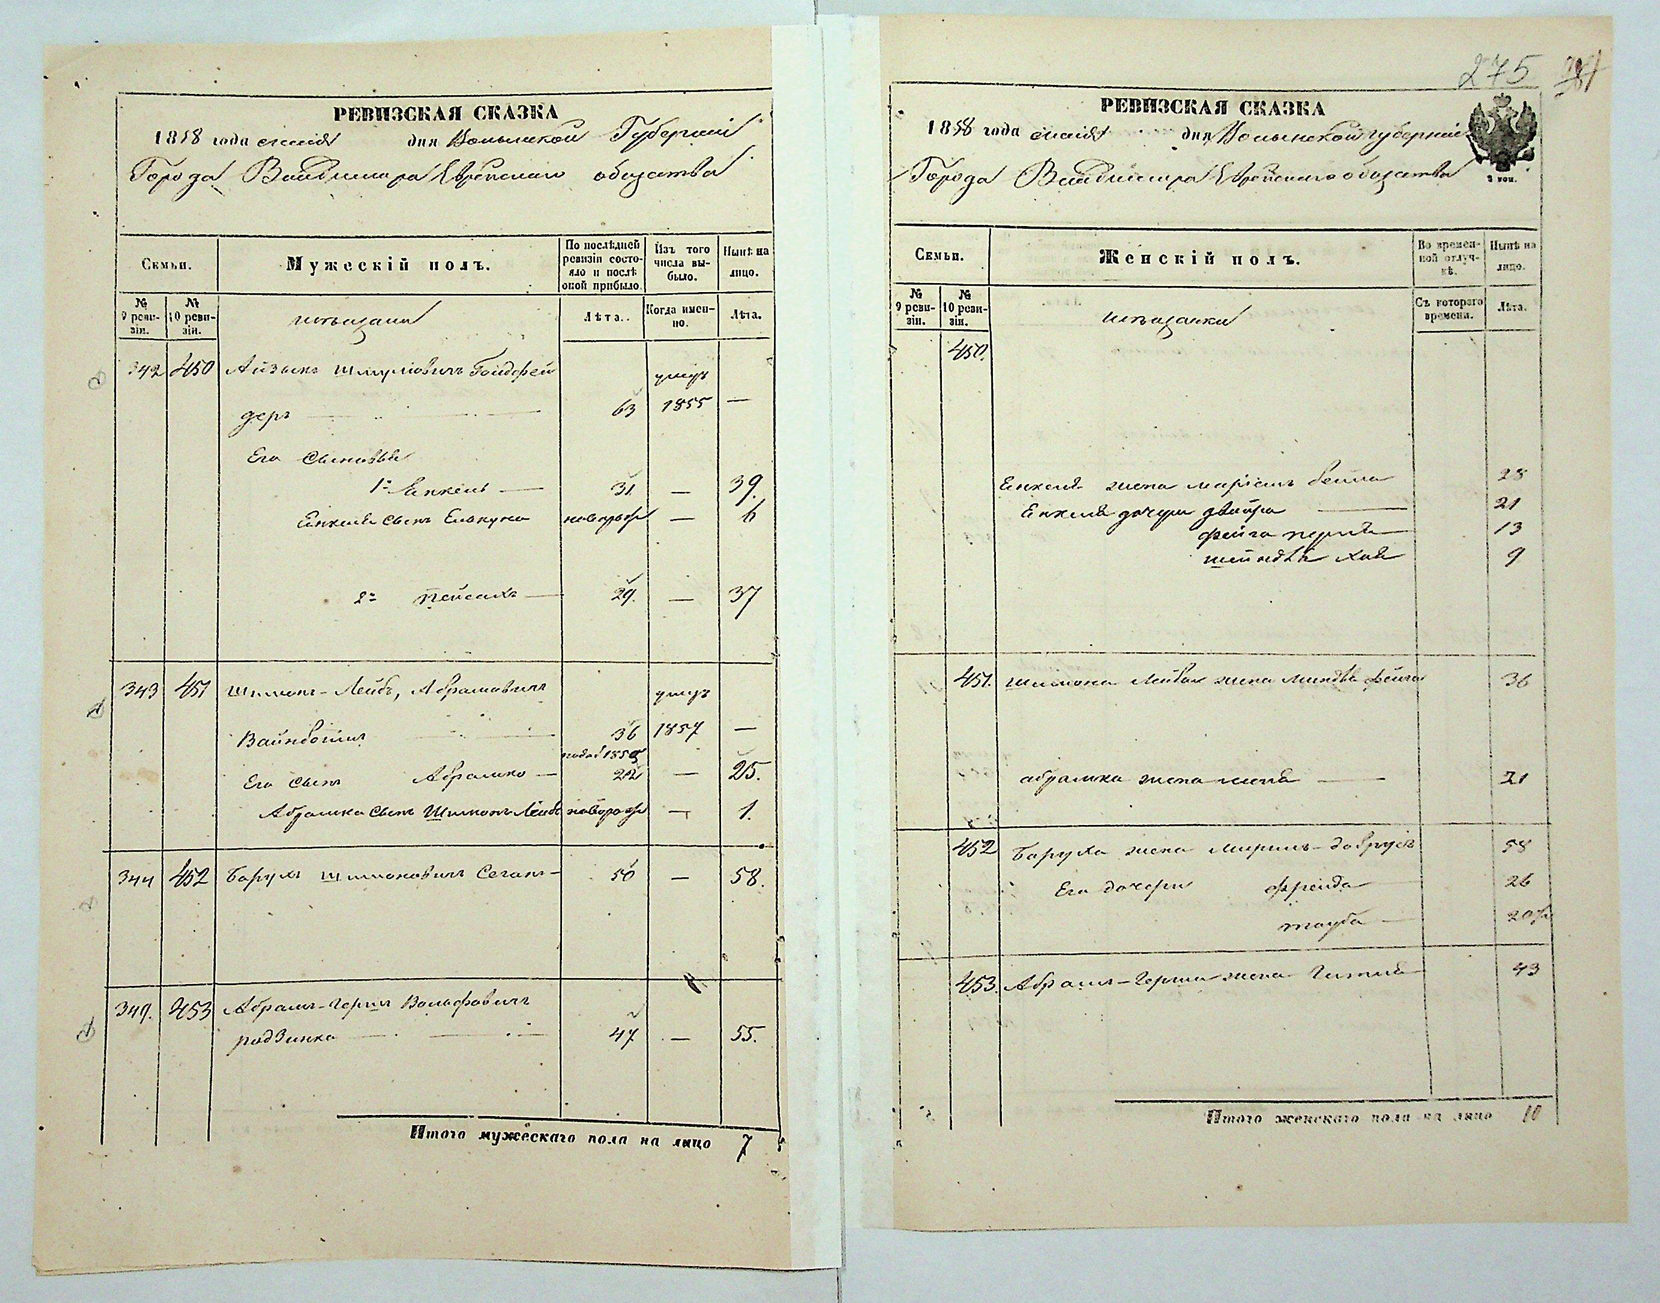 275
РЕВИЗСКАЯ СКАЗКА
1858 года мая дня Волынской Губернии
Города Владимира Еврейского общества
Семьи.
Мужескій полъ.
По послѣдней ревизіи состояло и послѣ оной прибыло.
Изъ того числа выбыло.
Нынѣ на лицо.
№ 9 ревизіи.
№ 10 ревизіи.
мѣщане
Лѣта.
Когда именно.
Лѣта.
342 450 Айзыкъ Шмулiовичъ Гольдфей умеръ
деръ 63 1855 —
Его сыновья
1й Янкель 31 — 39.
Янкеля сынъ новорож — 6
2й Пейсахъ 29. — 37
343 451 Шимонъ-Лейбъ, Абрамовичъ умеръ
36 1857 —
Его сынъ Абрамко 22 — 25.
Абрамка сынъ Шимонъ Лейбъ новорож — 1.
344 452 Барухъ Шимоновичъ Сеганъ 50 — 58.
349. 453 Абрамъ-Герша Вольфовичъ
родзинка 47 — 55.
Итого мужескаго пола на лицо 7
РЕВИЗСКАЯ СКАЗКА
1858 года мая дня Волынской губерніи
Города Владимира Еврейского общества
2 коп.
Семьи.
Женскій полъ.
Во временной отлучкѣ.
Нынѣ на лицо.
№ 9 ревизіи.
№ 10 ревизіи.
мѣщанки
Съ котораго времени.
Лѣта.
450.
Янкеля жена Маріемъ бейла 28
Янкеля дочери двойра 21
фейга перля 13
шейндля хая 9
451. Шимона Лейбы жена Миндля фейга 36
абрамка жена 21
452 Баруха жена Миримъ-добрушъ 58
Его дочери фрейда 26
тауба 20
453. Абрамъ-Герша жена Гитля 43
Итого женскаго пола на лицо 10